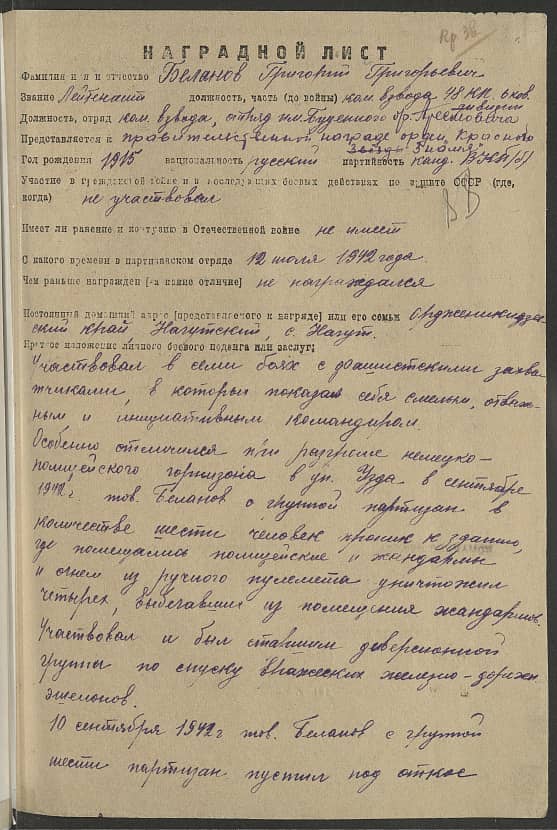 НАГРАДНОЙ ЛИСТ
Фамилия имя и отчество Беланов Григорий Григорьевич
Звание Лейтенант должность, часть (до войны) ком. взвода 48 КП 6 кав.
дивизии
Должность, отряд ком. взвода, отряд им. Буденного бр.
Представляется к правительственной награде орден „Красного
Год рождения 1915 национальность русский партийность канд. ВКП(б)
Участие в гражданской войне и в последующих боевых действиях по защите СССР (где,
когда) не участвовал
Имеет ли ранение и контузию в Отечественной войне не имеет
С какого времени в партизанском отряде 12 июля 1942 года.
Чем раньше награжден [за какие отличие] не награждался
Постоянный домашний адрес [представляемого к награде] или его семьи Орджоникидзев-
ский край, Нагутский, с. Нагут.
Краткое изложение личного боевого подвига или заслуг:
Участвовал в семи боях с фашистскими захва-
тчиками, в которых показал себя смелым, отваж-
ным и инициативным командиром.
Особенно отличился при разгроме немецко-
полицейского гарнизона в дн. Узда в сентябре
1942 г тов. Беланов с группой партизан в
количестве шести человек проник к зданию,
где помещались полицейские и жандармы
и огнем из ручного пулемета уничтожил
четырех, выбегавших из помещения жандармов.
Участвовал и был старшим диверсионной
группы по спуску вражеских железно-дорожн
эшелонов.
10 сентября 1942 г тов. Беланов с группой
шести партизан пустил под откос